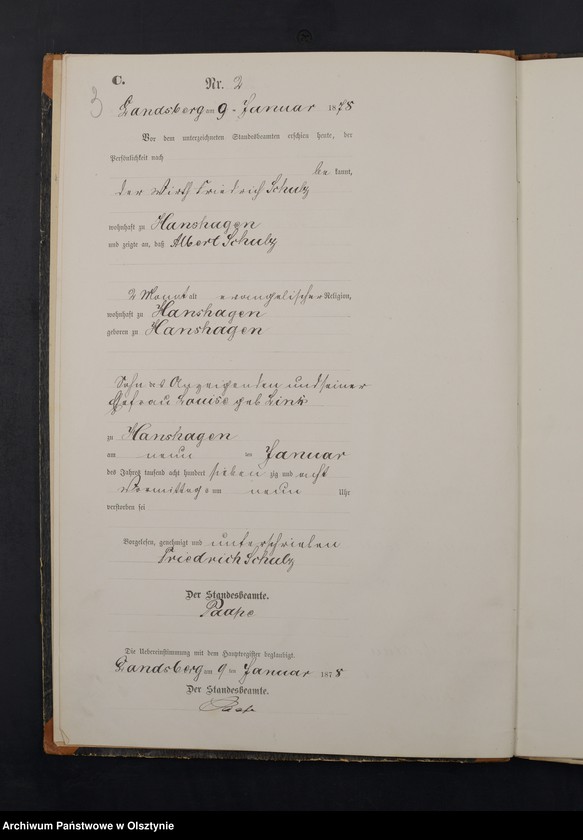 C.
Nr. 2
3
Landsberg am 9. Januar 1878
Vor dem unterzeichneten Standesbeamten erschien heute, der
Persönlichkeit nach
be kannt,
der Wirth Friedrich Schulz
wohnhaft zu Hanshagen
und zeigte an, daß Albert Schulz
2 Monat alt evangelischer Religion,
wohnhaft zu Hanshagen
geboren zu Hanshagen
Sohn des Anzeigenden und seiner
Ehefrau Louise geb. Link
zu Hanshagen
am neun ten Januar
des Jahres tausend acht hundert sieben zig und acht
Vormittags um neun Uhr
verstorben sei
Vorgelesen, genehmigt und unterschrieben
Friedrich Schulz
Der Standesbeamte.
Paape
Die Uebereinstimmung mit dem Hauptregister beglaubigt.
Landsberg am 9 ten Januar 1878
Der Standesbeamte.
Archiwum Państwowe w Olsztynie